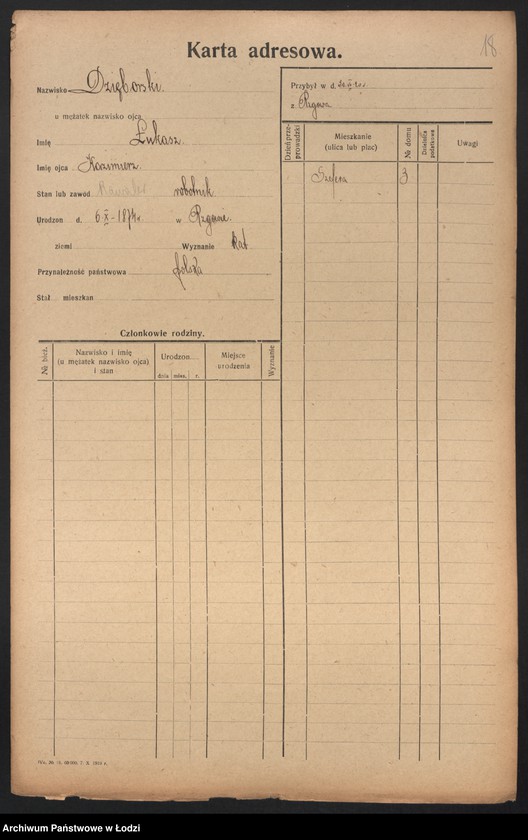 18
Karta adresowa.
Nazwisko Dzięborski.
u mężatek nazwisko ojca
Imię Łukasz.
Imię ojca Kazimierz.
Stan lub zawód robotnik
Urodzon d. 6 X - 1874 r. w
ziemi Wyznanie kat
Przynależność państwowa polska
Stał mieszkan
Przybył w d.
z
Dzień przeprowadzki
Mieszkanie
(ulica lub plac)
№ domu
Dzielnica podatkowa
Uwagi
3
Członkowie rodziny.
№ bież.
Nazwisko i imię
(u mężatek nazwisko ojca)
i stan
Urodzon
dnia mies. r.
Miejsce
urodzenia
Wyznanie
Archiwum Państwowe w Łodzi